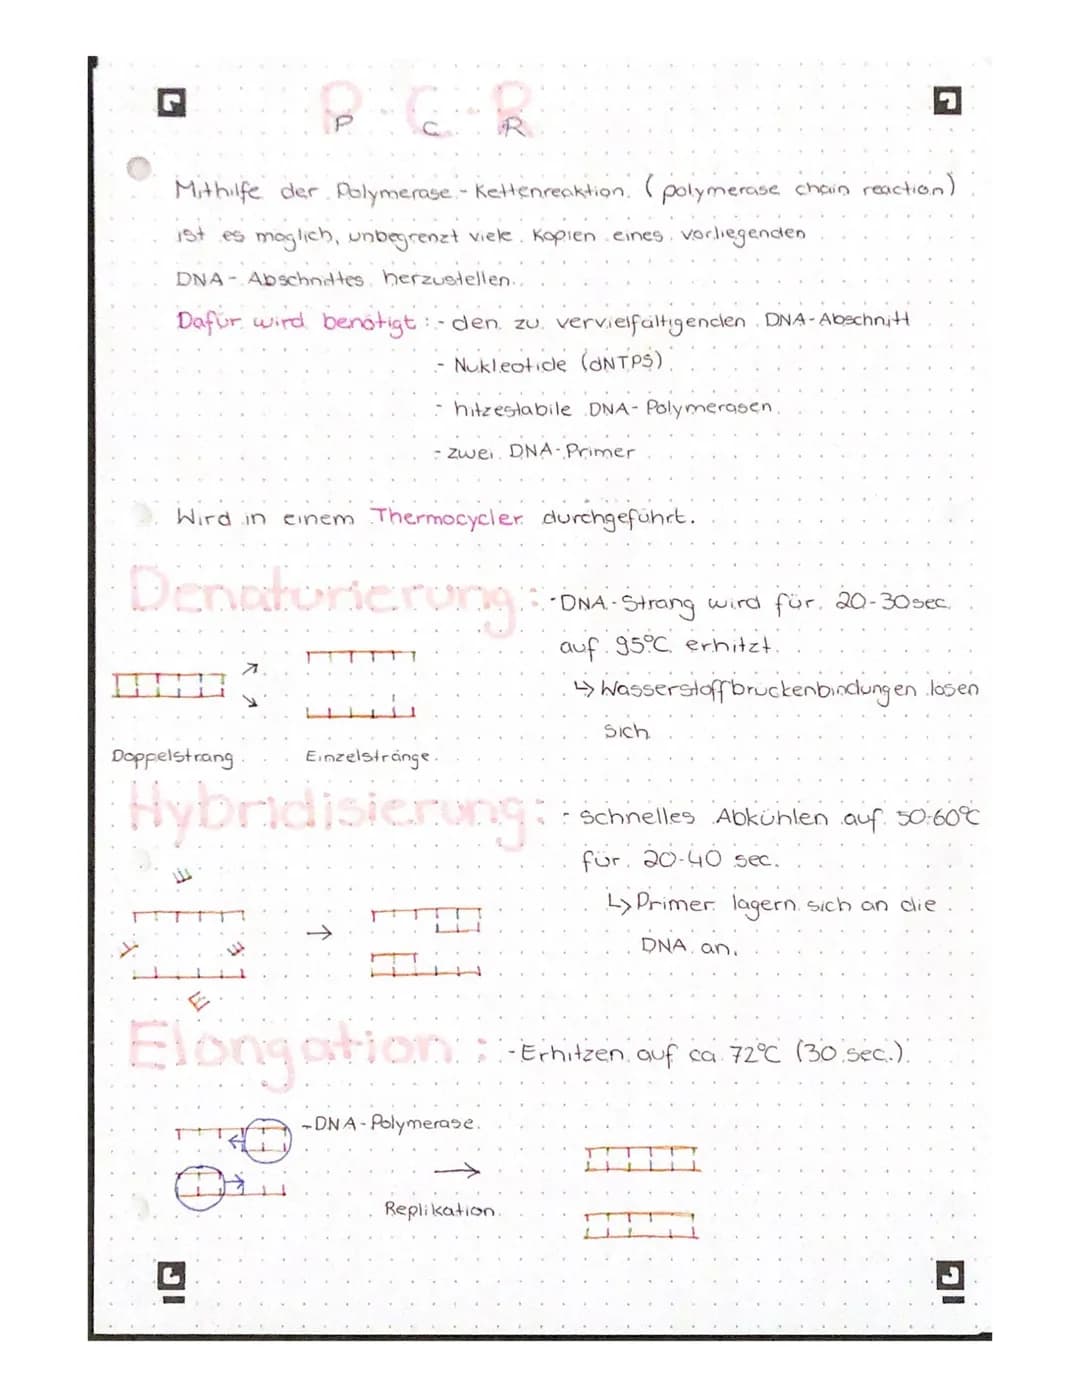 P C R
P C R
Mithilfe der Polymerase-Kettenreaktion (polymerase chain reaction)
ist es möglich, unbegrenzt viele Kopien eines vorliegenden
DNA-Abschnittes herzustellen.
Dafür wird benötigt: - den zu vervielfältigenden DNA-Abschnitt
- Nukleotide (dNTPS)
- hitzestabile DNA-Polymerasen
- zwei DNA-Primer
Wird in einem Thermocycler durchgeführt.
Denaturierung: - DNA-Strang wird für 20-30sec.
auf 95°C erhitzt.
↳ Wasserstoffbrückenbindungen lösen
sich
Doppelstrang Einzelstränge
Hybridisierung: - schnelles Abkühlen auf 50-60°C
für 20-40 sec.
↳ Primer lagern sich an die
DNA an.
Elongation: - Erhitzen auf ca. 72°C (30 sec.)
-DNA-Polymerase
Replikation